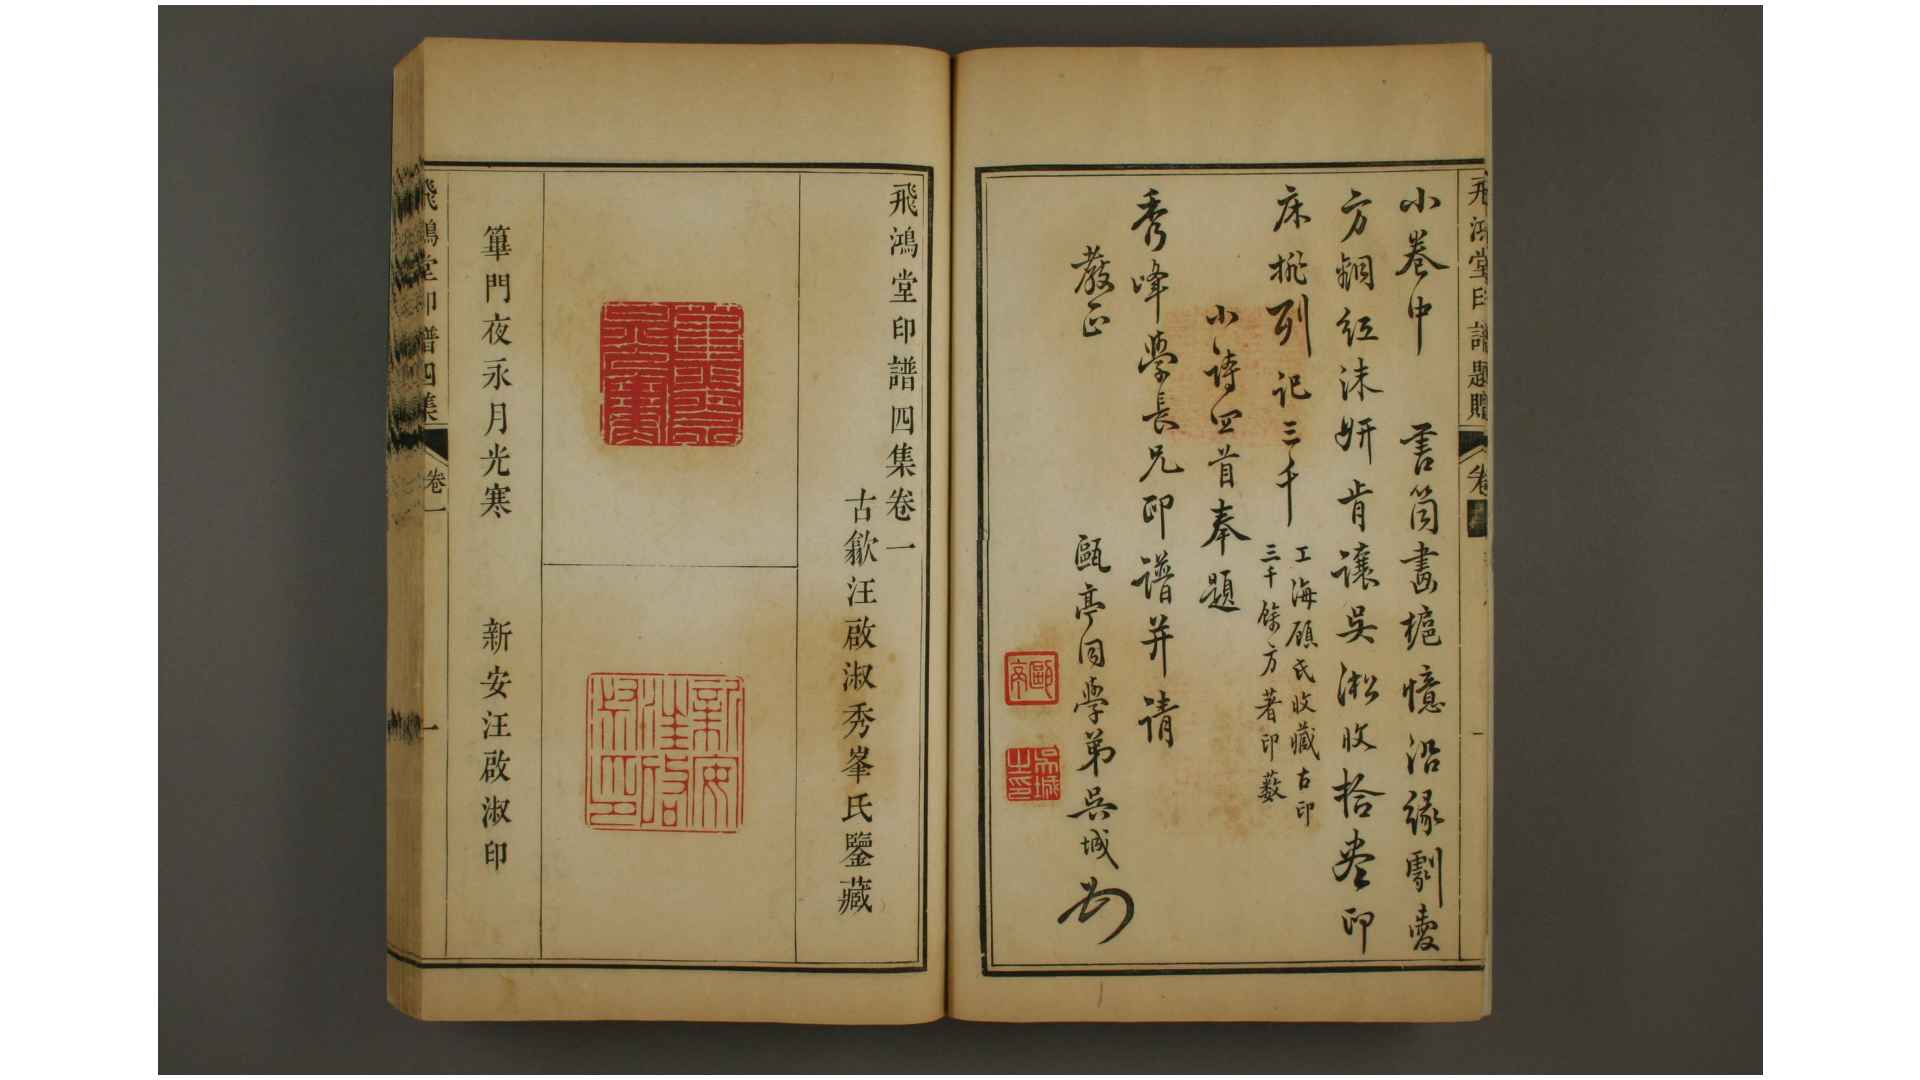 小卷中
書筒畫攎憶沿緣劇愛
方銅紅沫妍肯讓吳淞收拾盡印
床排列記三千
工海顧氏收藏古印
三千餘方著印藪
小詩四首奉題
秀峰學長兄印譜并請
教正
甌亭同學弟吳城
甌亭
吳城之印
飛鴻堂印譜題贈
卷
飛鴻堂印譜四集卷一
古歙汪啟淑秀峯氏鑒藏
新安汪啟淑印
篳門夜永月光寒
新安汪啟淑印
飛鴻堂印譜四集
卷一
一